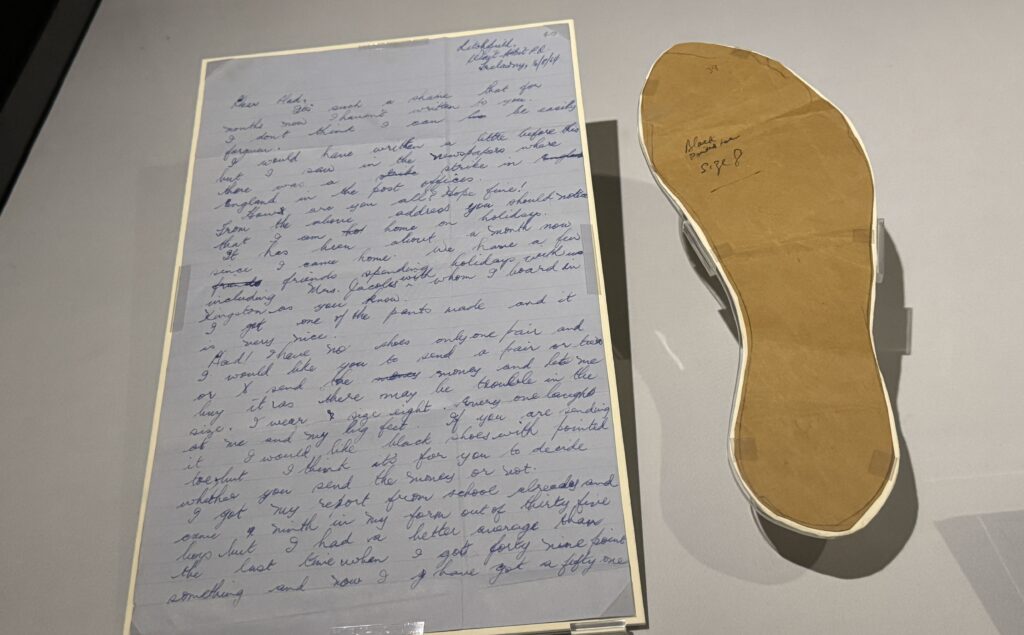 Litchfield,
Wait-A-Bit P.O.
Trelawny, 16/8/64
Dear Dad,
Its such a shame that for
months now I haven't written to you.
I don't think I can be easily
forgiven.
I would have written a little before this
but I saw in the newspapers where
there was a strike in
England in the post offices.
How are you all? Hope fine!
From the above address you should notice
that I am home on holidays.
It has been about a month now
since I came home. We have a few
friends spending holidays with us
including Mrs. Jacobs with whom I board in
Kingston as you know.
I got one of the pants made and it
is very nice.
Dad! I have no shoes only one pair and
I would like you to send a pair or two
or send the money and let me
buy it as there may be trouble in the
size. I wear size eight. Every one laughs
at me and my big feet. If you are sending
it I would like black shoes with pointed
toe but I think its for you to decide
whether you send the money or not.
I got my report from school already and
came ninth in my form out of thirty five
boys but I had a better average than
the last time when I got forty nine point
something and now I have got a fifty one
Black
Pointed
Size 8